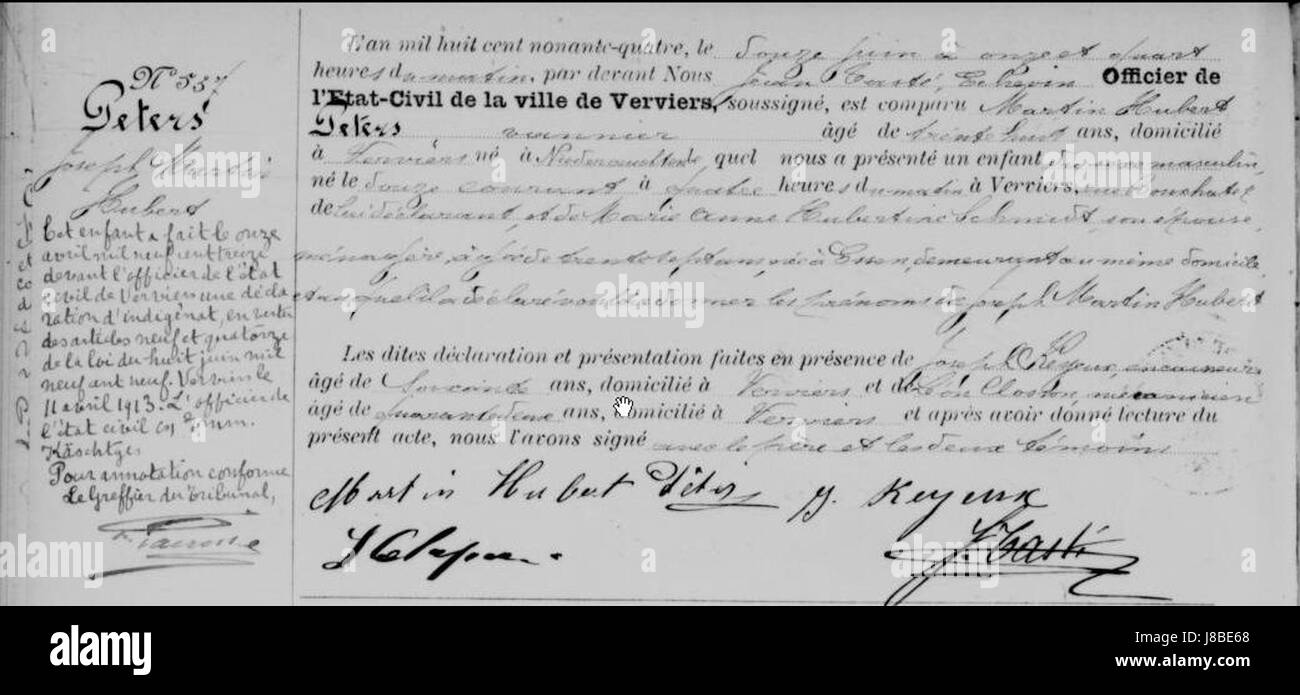 N° 557
Peters
Joseph Martin
Hubert
Cet enfant a fait le onze
avril mil neuf cent treize
devant l'officier de l'état
civil de Verviers une décla
ration d'indigénat, en vertu
des articles neuf et quatorze
de la loi du huit juin mil
neuf cent neuf. Verviers le
11 avril 1913. L'officier de
l'état civil
Pour annotation conforme
Le Greffier du Tribunal,
L'an mil huit cent nonante-quatre, le douze juin à onze et quart
heures du matin, par devant Nous Jean Tasté, Echevin Officier de
l'Etat-Civil de la ville de Verviers, soussigné, est comparu Martin Hubert
Peters vannier âgé de trente huit ans, domicilié
à Verviers né à quel nous a présenté un enfant du sexe masculin,
né le douze courant à quatre heures du matin à Verviers,
de lui déclarant, et de Marie Anne Hubertine Schmidt, son épouse,
ménagère, âgée de trente sept ans, née à Essen, demeurant au même domicile
et auquel il a déclaré vouloir donner les prénoms de Joseph Martin Hubert
Les dites déclaration et présentation faites en présence de Joseph Keyeux, encaisseur
âgé de soixante ans, domicilié à Verviers et de Léon Closson, mécanicien
âgé de quarante deux ans, domicilié à Verviers et après avoir donné lecture du
présent acte, nous l'avons signé avec le père et les deux témoins
Martin Hubert Peters J. Keyeux
J. Tasté
alamy
Image ID: J8BE68
www.alamy.com